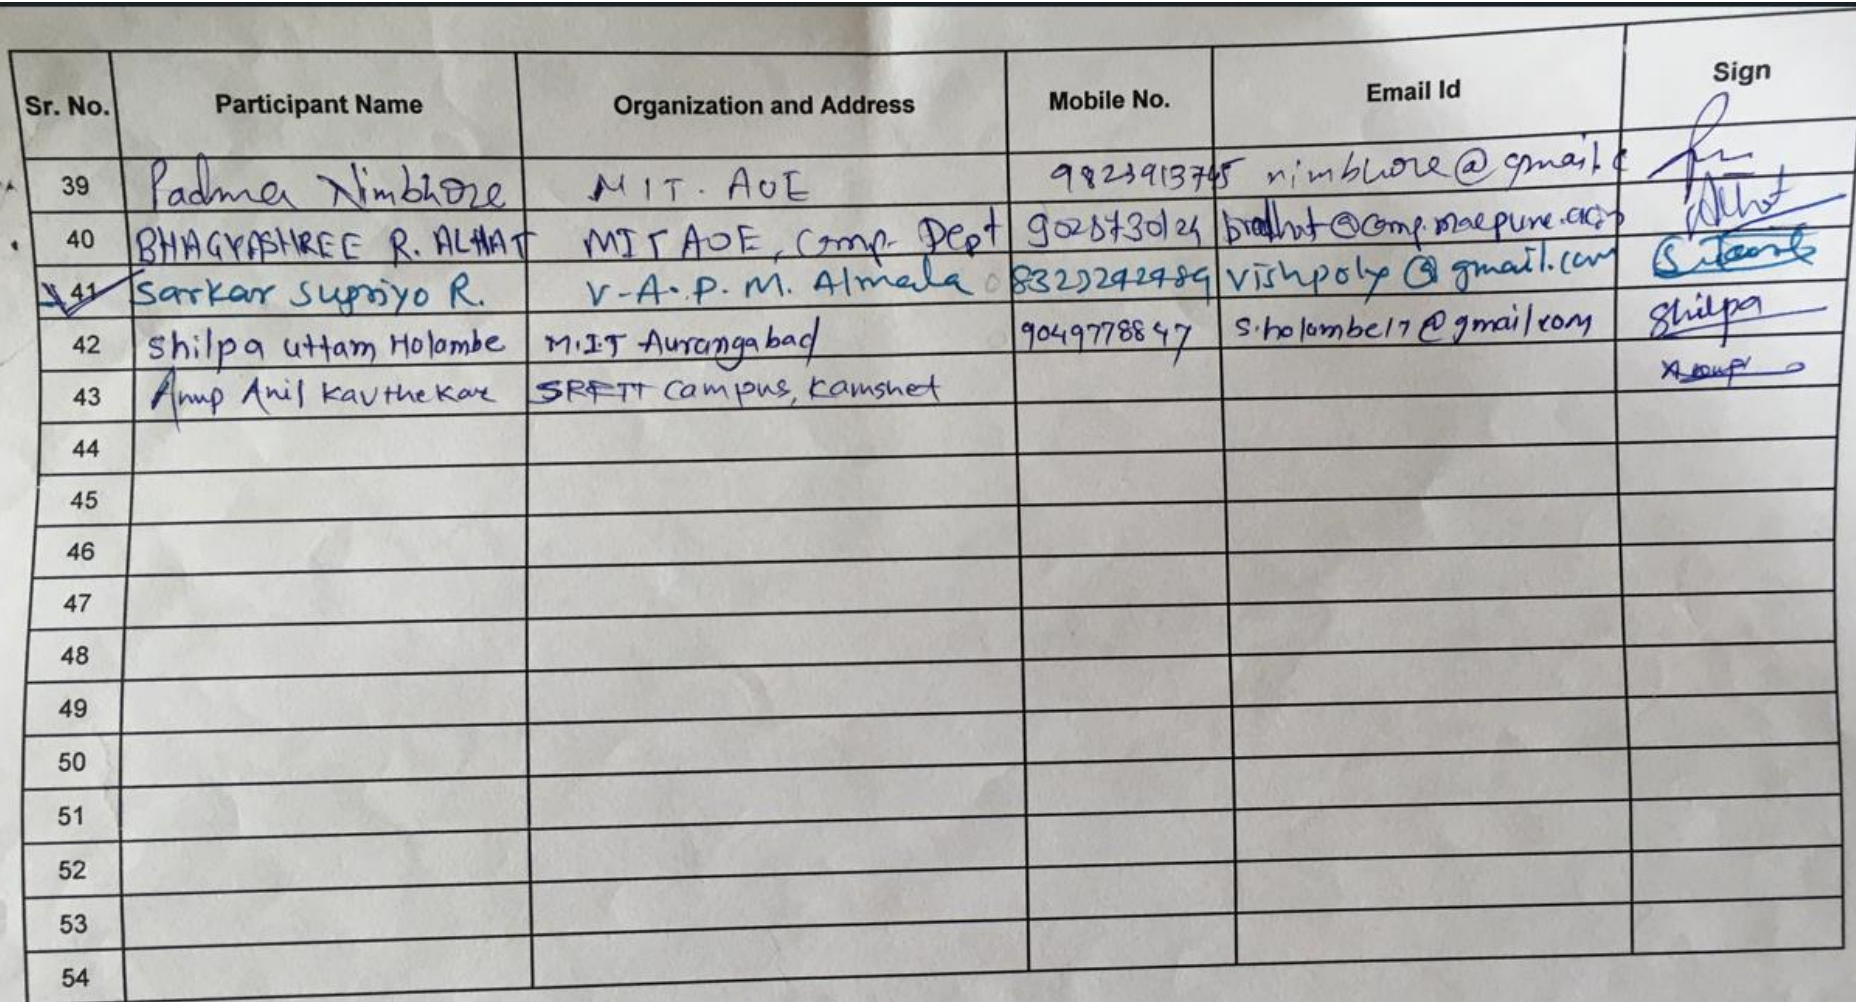 Sr. No. Participant Name Organization and Address Mobile No. Email Id Sign
39 Padma Nimbhore MIT. AOE nimbhore@gmail.c
40 BHAGYASHREE R. ALHAT MIT AOE, Comp. Dept
41 Sarkar Supriyo R. V.A.P.M. Almala vishpoly@gmail.com
42 Shilpa Uttam Holambe M.IT Aurangabad 9049778847 s.holambe17@gmail.com Shilpa
43 Anup Anil Kavthekar Campus, Kamshet
44
45
46
47
48
49
50
51
52
53
54